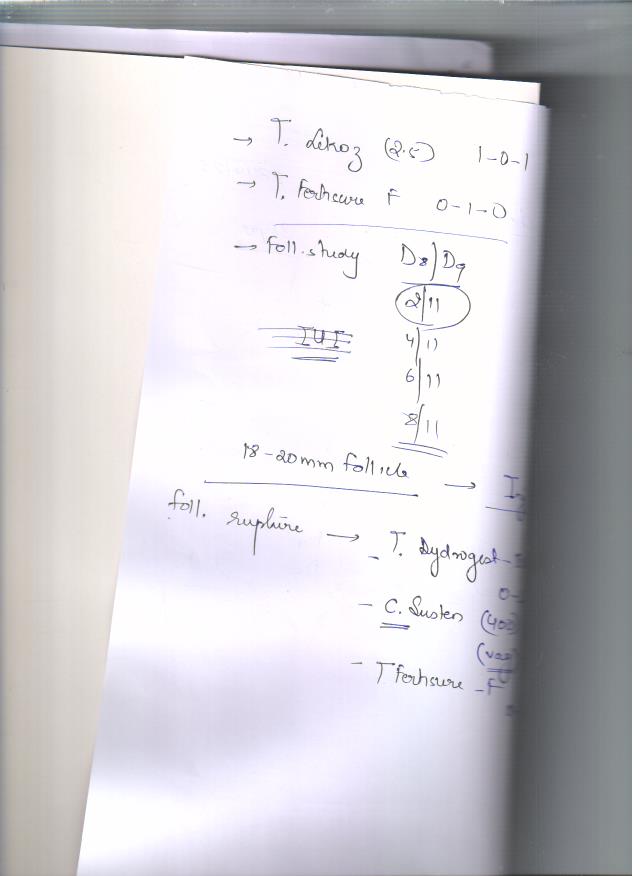 → T. Letroz (2.5) 1-0-1
→ T. Fertisure F 0-1-0
→ Foll. study D8/D9
2/11
IUI 4/11
6/11
8/11
18-20mm follicle →
foll. rupture → - T. Dydrogest
0-
- C. Susten (400)
(vag)
- T Fertisure - F